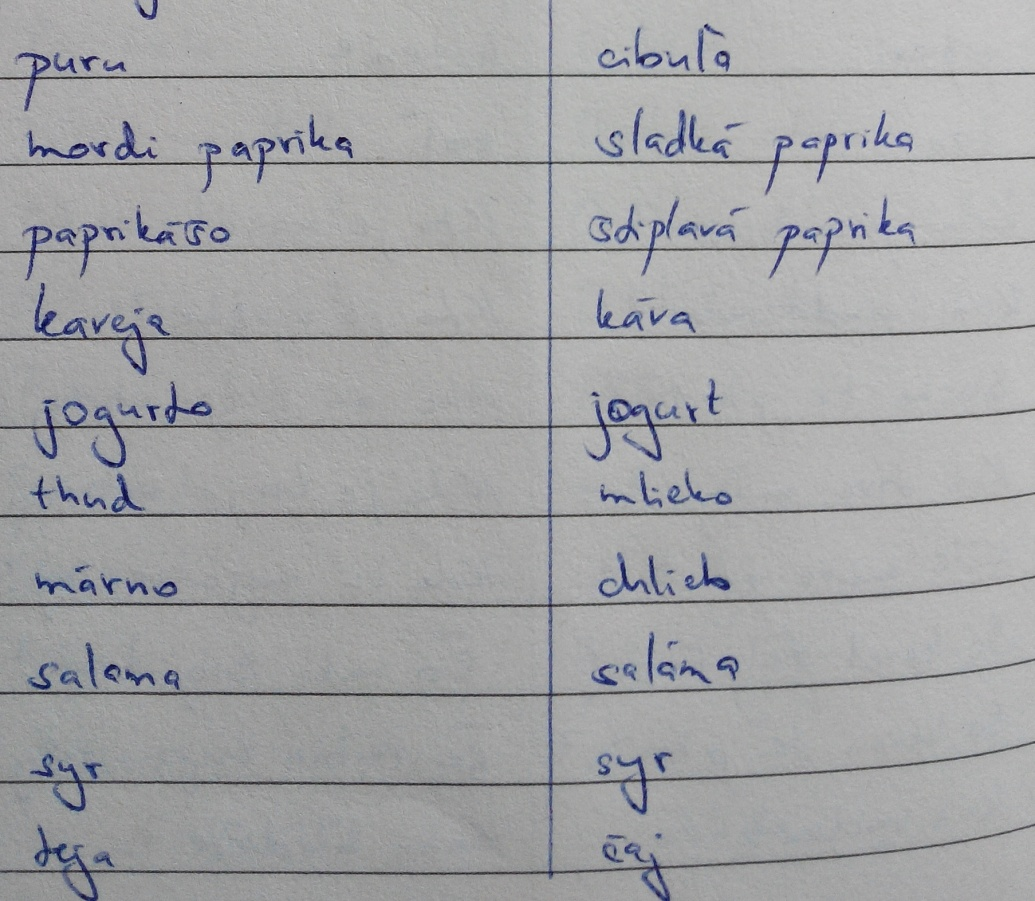 puru cibuľa
mordi paprika sladká paprika
paprikāšo štiplavá paprika
kaveja káva
jogurto jogurt
thud mlieko
márno chlieb
salama saláma
syr syr
teja čaj